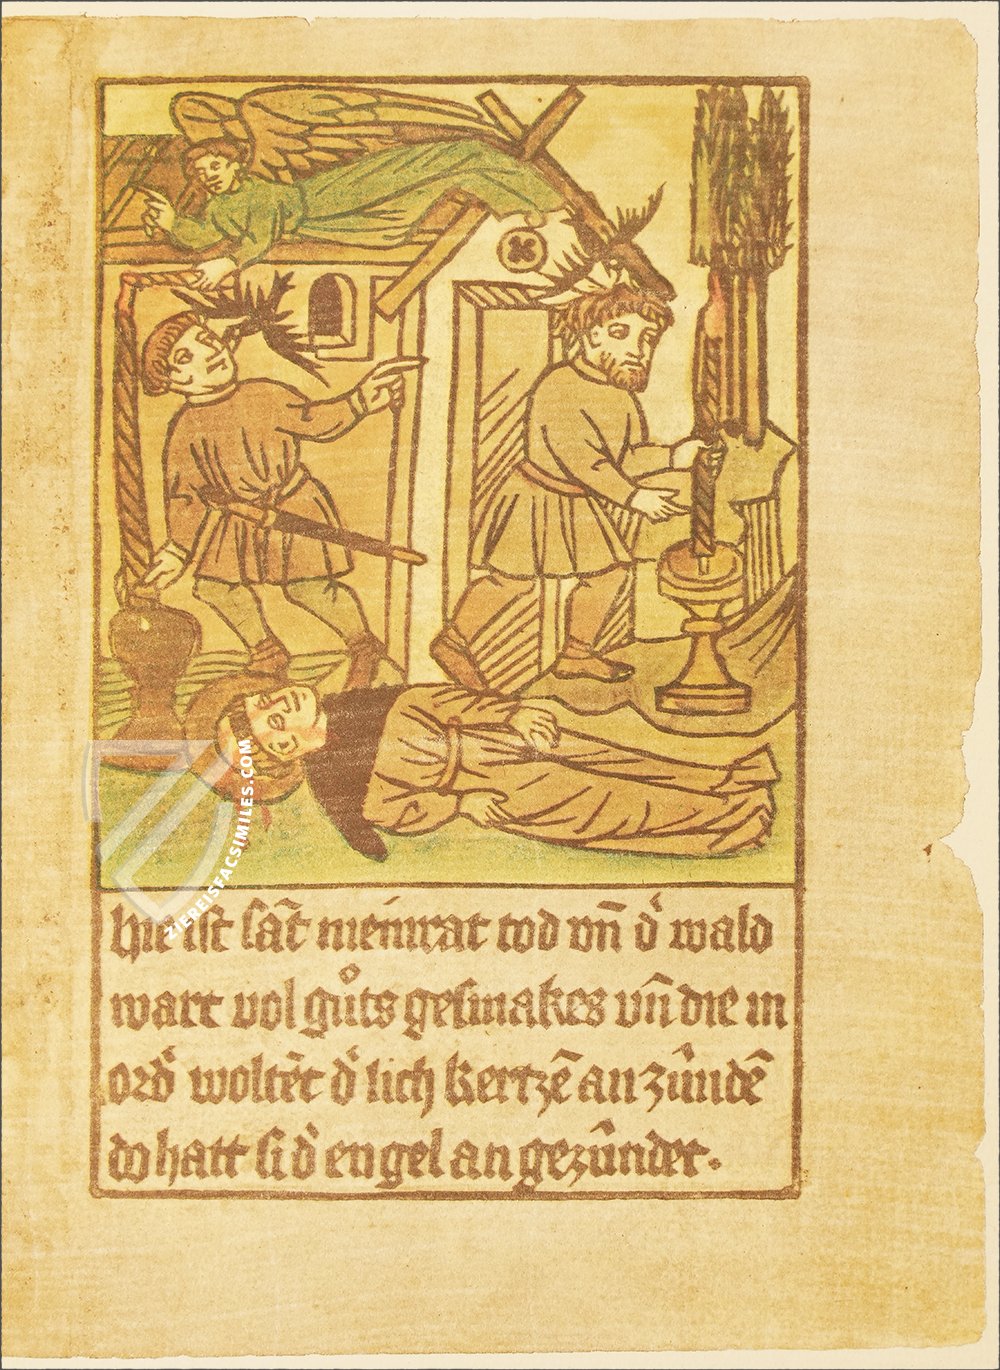 Hie ist sāt meinrat tod vn̄ d᷑ wald
wart vol gůts gesmakes vn̄ die in
ord᷑ woltēt d᷑ lich kertzē an zûndē
do hatt si d᷑ engel an gezûndet.
ZIEREISFACSIMILES.COM